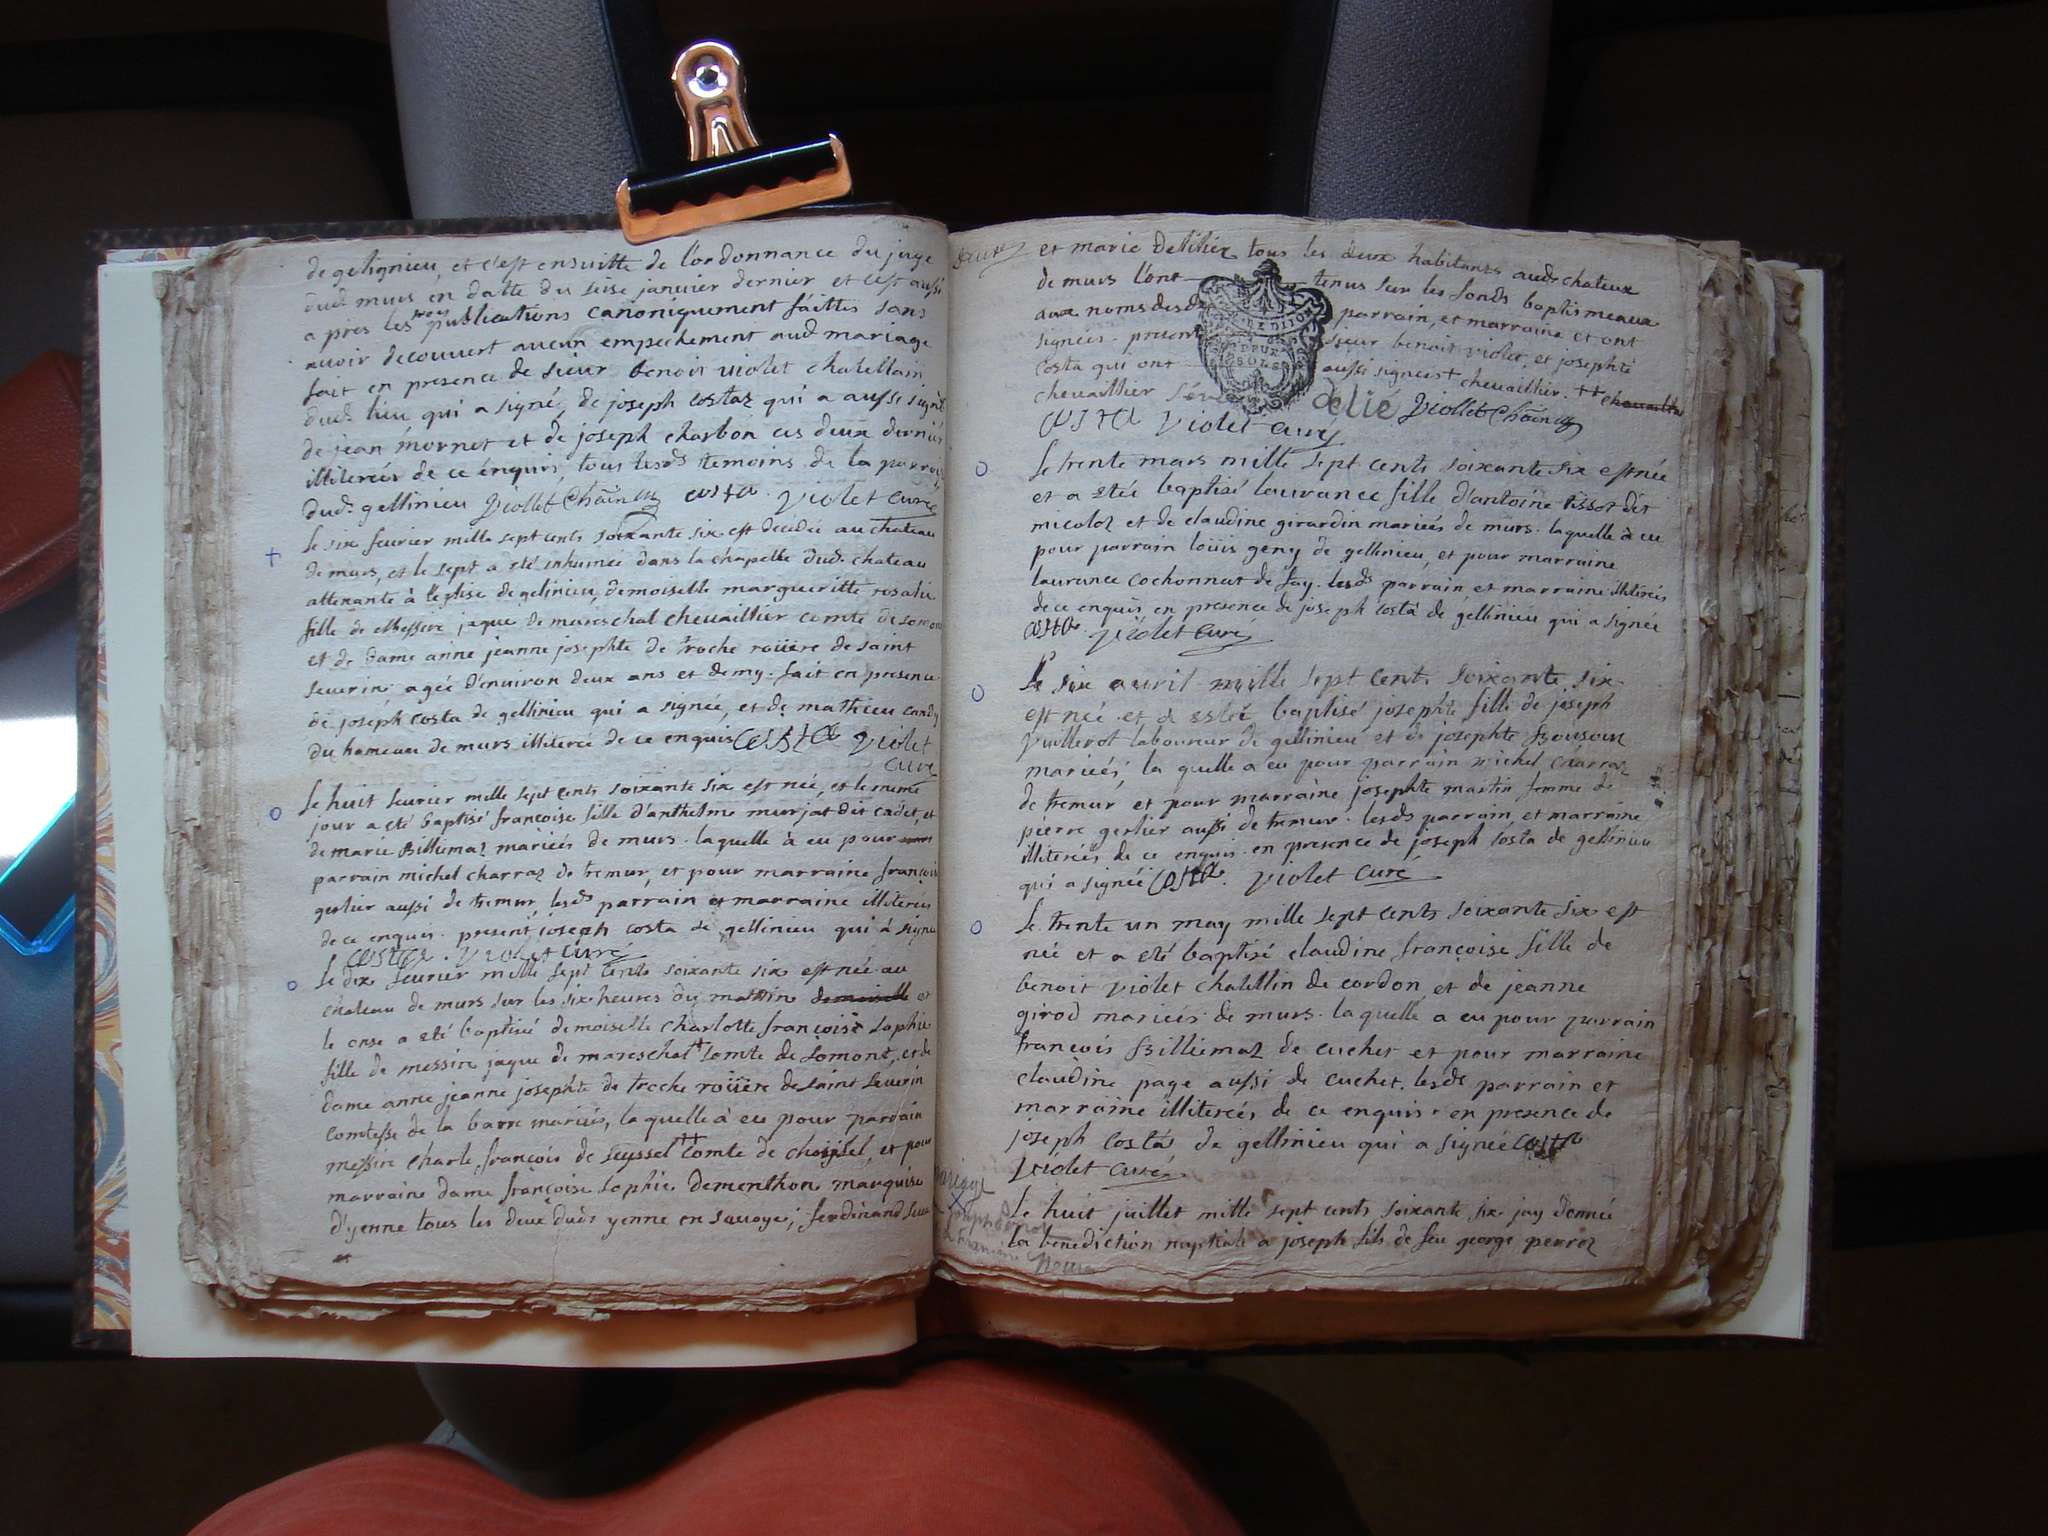 de gelignieu, et c'est ensuitte de l'ordonnance du juge
dud. murs en datte du seise janvier dernier et c'est aussi
a pres les trois publications canoniquement faittes sans
avoir decouvert aucun empechement aud. mariage
fait en presence de sieur benoit violet chatellain
dud. lieu qui a signé, de joseph costaz qui a aussi signé
de jean mornet et de joseph charbon ces deux derniers
illiterés de ce enquis, tous lesd. temoins de la parroisse
dud. gellinieu Viollet Chain costa violet curé
Le six fevrier mille sept cents soixante six est decedee au chateau
de murs, et le sept a été inhumée dans la chapelle dud. chateau
attenante à l'eglise de gelinieu, demoiselle margueritte rosalie
fille de Messire jaque de mareschal chevaillier comte de somon
et de dame anne jeanne josephte de troche roüere de saint
severin agée d'environ deux ans et demy. fait en presence
de joseph costa de gellinieu qui a signée, et de mathieu candy
du hameau de murs illiteré de ce enquis costa violet
curé
Le huit fevrier mille sept cents soixante six est née, et le meme
jour a eté baptisé françoise fille d'anthelme murjat dit cadet, et
de marie Billiemaz mariées de murs. laquelle à eu pour
parrain michel charraz de tremur, et pour marraine françoise
gerlier aussi de tremur, lesds parrain et marraine illiterés
de ce enquis. present joseph costa de gellinieu qui à signé
costa. violet curé
Le dix fevrier mille sept cents soixante six est née au
chateau de murs sur les six heures du mattin demoiselle et
le onse a eté baptisé demoiselle charlotte françoise sophie
fille de messire jaque de mareschal + comte de somont, et de
dame anne jeanne josephte de troche roüere de saint severin
comtesse de la barre mariés, laquelle à eu pour parrain
messire charle françois de seyssel ++ comte de choissel, et pour
marraine dame françoise sophie dementhon marquise
d'yenne tous les deux duds yenne en savoye; ferdinand
et marie delilier tous les deux habitants aud. chateux
de murs l'ont tenus sur les fonds baptismeaux
aux noms desd. parrain, et marraine et ont
signées. present sieur benoit violet, et josephte
costa qui ont aussi signées + chevaillier. ++ chevaillier
chevaillier delié Viollet Chain
costa violet curé
Le trente mars mille sept cents soixante six est née
et a etée baptisé laurance fille d'antoine tissot dit
micoloz et de claudine girardin mariées de murs. laquelle à eu
pour parrain loüis geny de gellinieu, et pour marraine
laurance cochonnat de fay. lesds parrain et marraine illiterés
de ce enquis en presence de joseph costa de gellinieu qui a signée
costa violet curé
Le six avril mille sept cents soixante six
est née et a estée baptisé josephte fille de joseph
Vuillerot laboureur de gellinieu et de josephte Bousoin
mariées, laquelle a eu pour parrain michel charraz
de tremur et pour marraine josephte martin femme de
pierre gerlier aussi de tremur. lesds parrain, et marraine
illiterés de ce enquis en presence de joseph costa de gellinieu
qui a signée costa. violet curé
Le trente un may mille sept cents soixante six est
née et a eté baptisé claudine françoise fille de
benoit violet chatellin de cordon, et de jeanne
girod mariées de murs. laquelle a eu pour parrain
françois Billiemaz de cuchet et pour marraine
claudine page aussi de cuchet. lesds parrain et
marraine illiterés de ce enquis. en presence de
joseph costa de gellinieu qui a signée costa
violet curé
mariage
joseph perroz
Le huit juillet mille sept cents soixante six jay donnée
la benediction nuptiale a joseph fils de feu george perroz